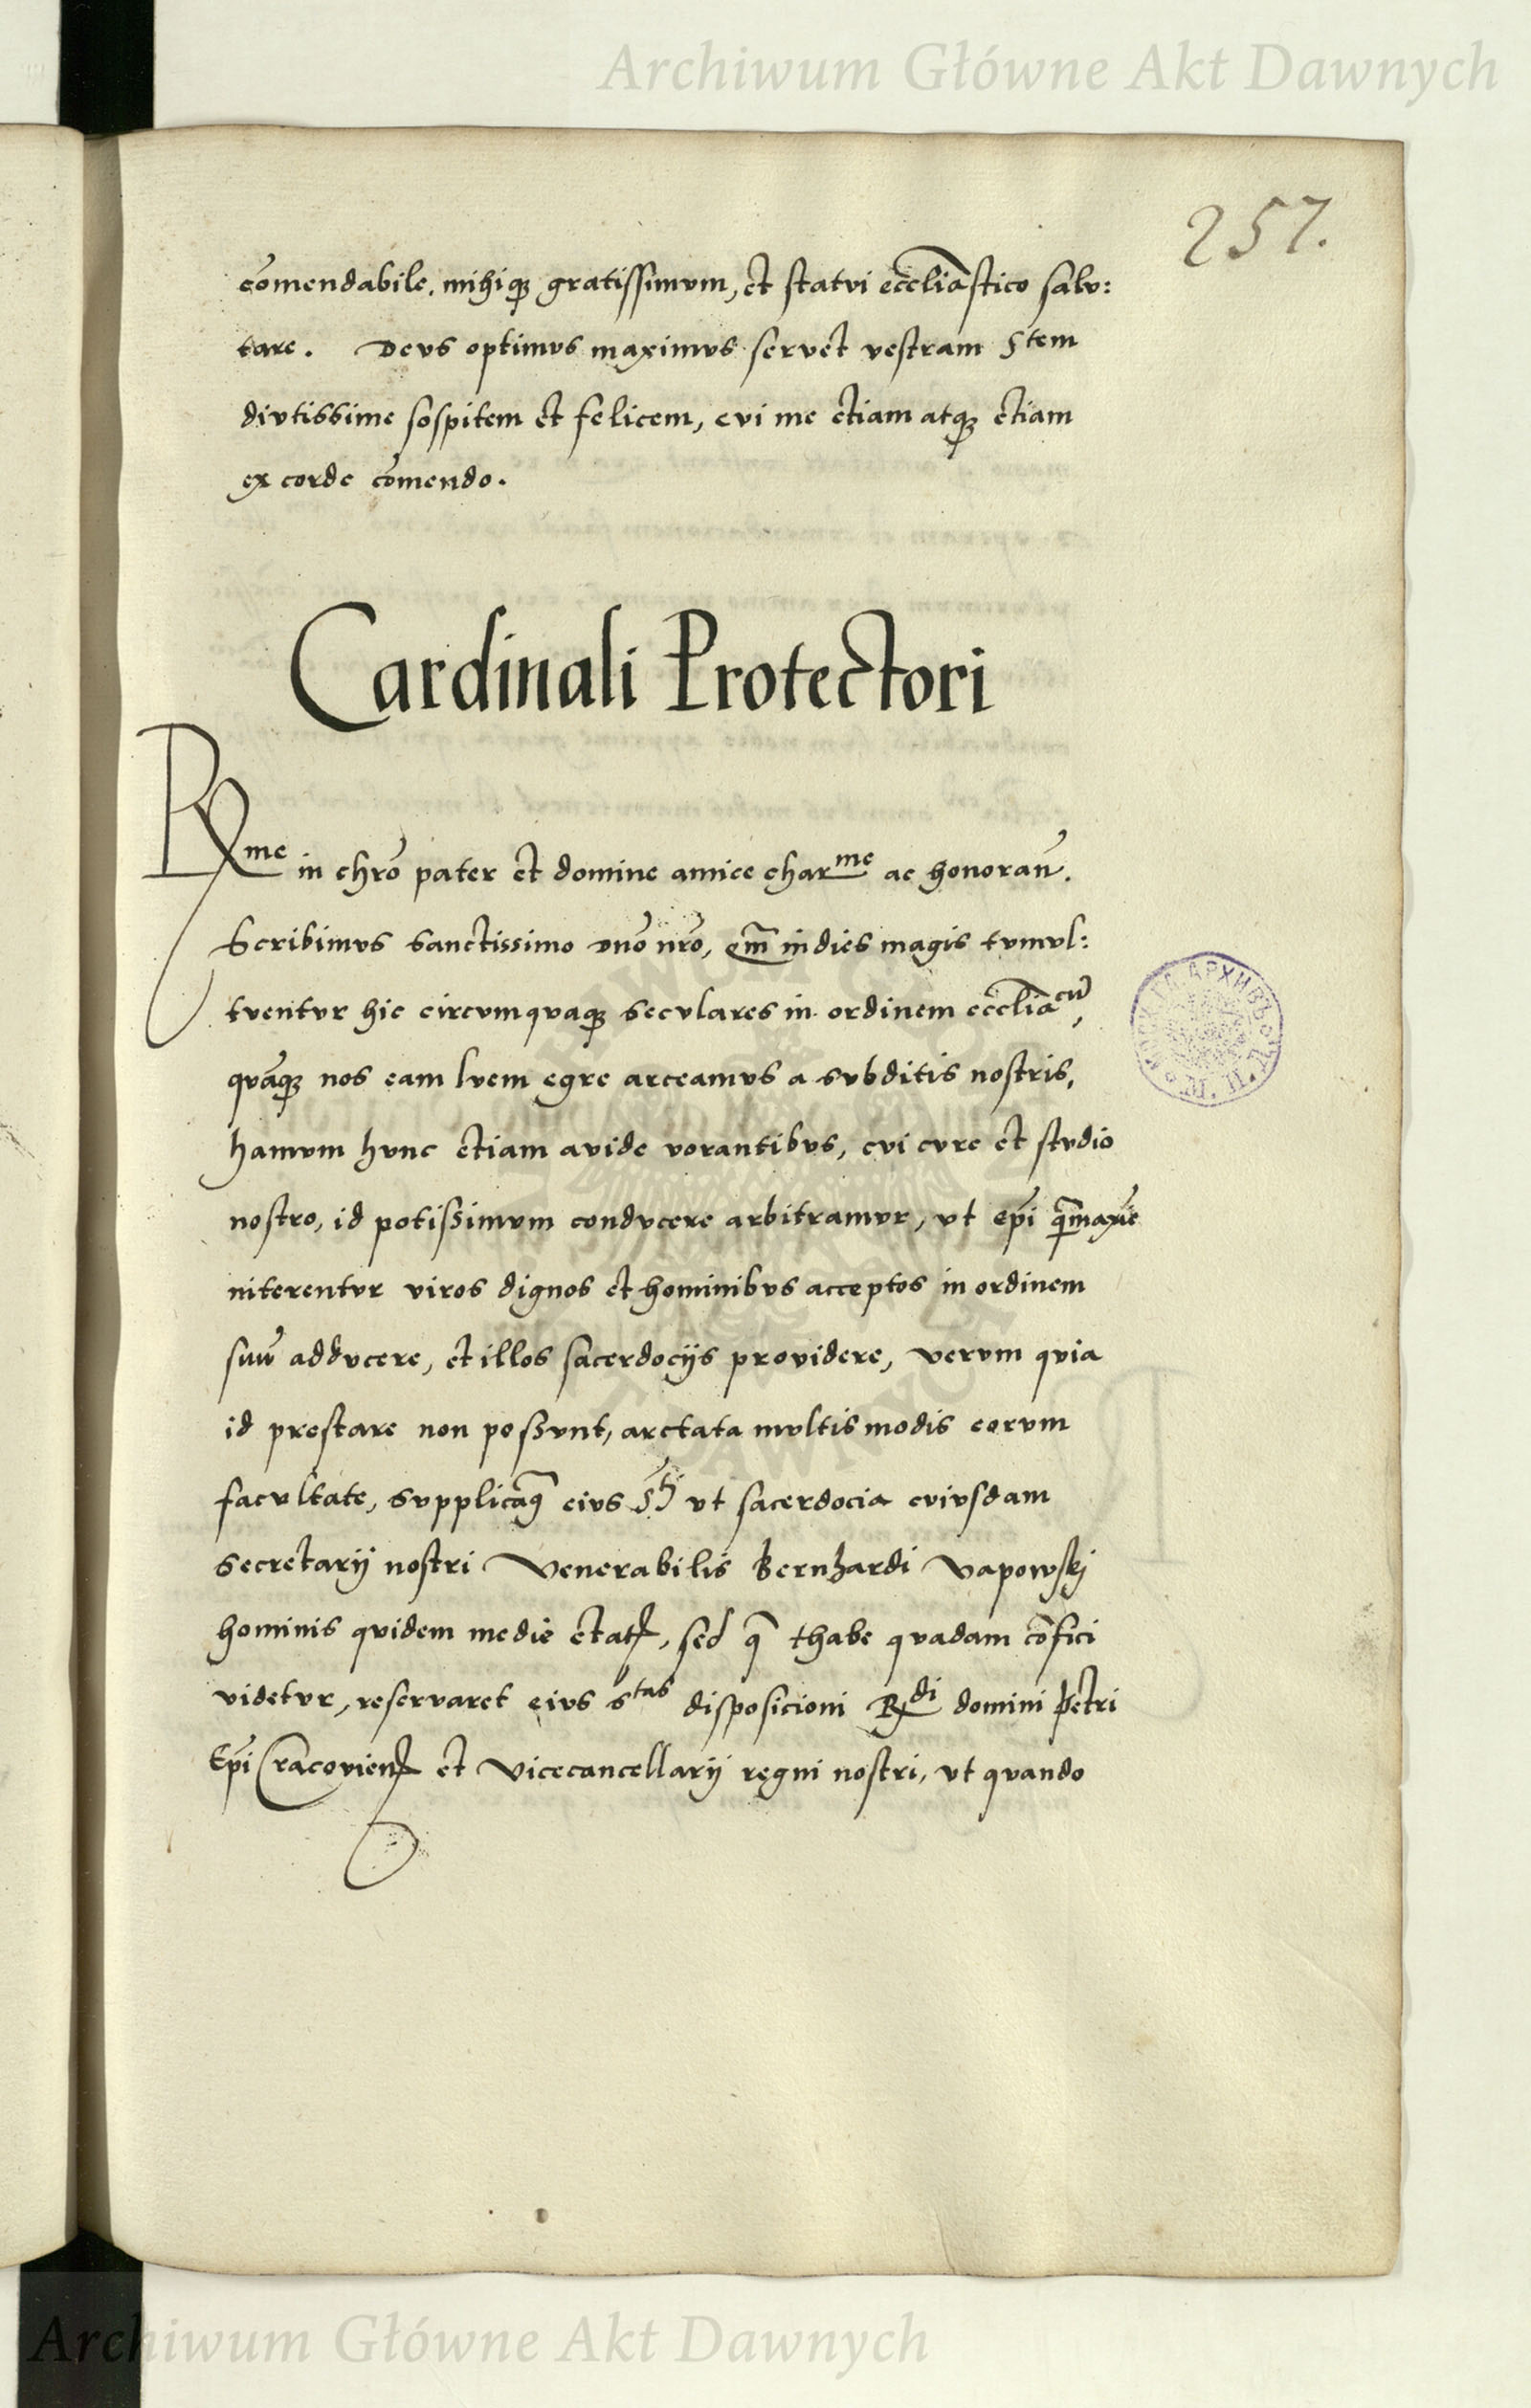 Archiwum Główne Akt Dawnych
257.
com̄endabile, mihiq₃ gratissimum, et statui eccl̄iastico salu:
tare. Deus optimus maximus servet vestram Stem
diutissime sospitem et felicem, cui me etiam atq₃ etiam
ex corde com̄endo.
Cardinali Protectori
Rme in chr̄o pater et domine amice charme ac honoran̄.
Scribimus Sanctissimo dn̄o nr̄o, qm̄ indies magis tumul:
tuentur hic circumquaq₃ seculares in ordinem eccl̄iacū,
quāq₃ nos eam luem egre arceamus a subditis nostris,
hamum hunc etiam avide vorantibus, cui cure et studio
nostro, id potissimum conducere arbitramur, ut ep̄i q̄maxīe
niterentur viros dignos et hominibus acceptos in ordinem
suū adducere, et illos sacerdocijs providere, verum quia
id prestare non possunt, arctata multis modis eorum
facultate, supplicāq₃ eius Sti ut sacerdocia cuiusdam
Secretarij nostri Venerabilis Bernhardi Vapowskj
hominis quidem medie etatꝭ, sed q̄ thabe quadam cōfici
videtur, reservaret eius Stas disposicioni Rdi domini Petri
Ep̄i Cracovienꝭ et Vicecancellarij regni nostri, ut quando
Archiwum Główne Akt Dawnych